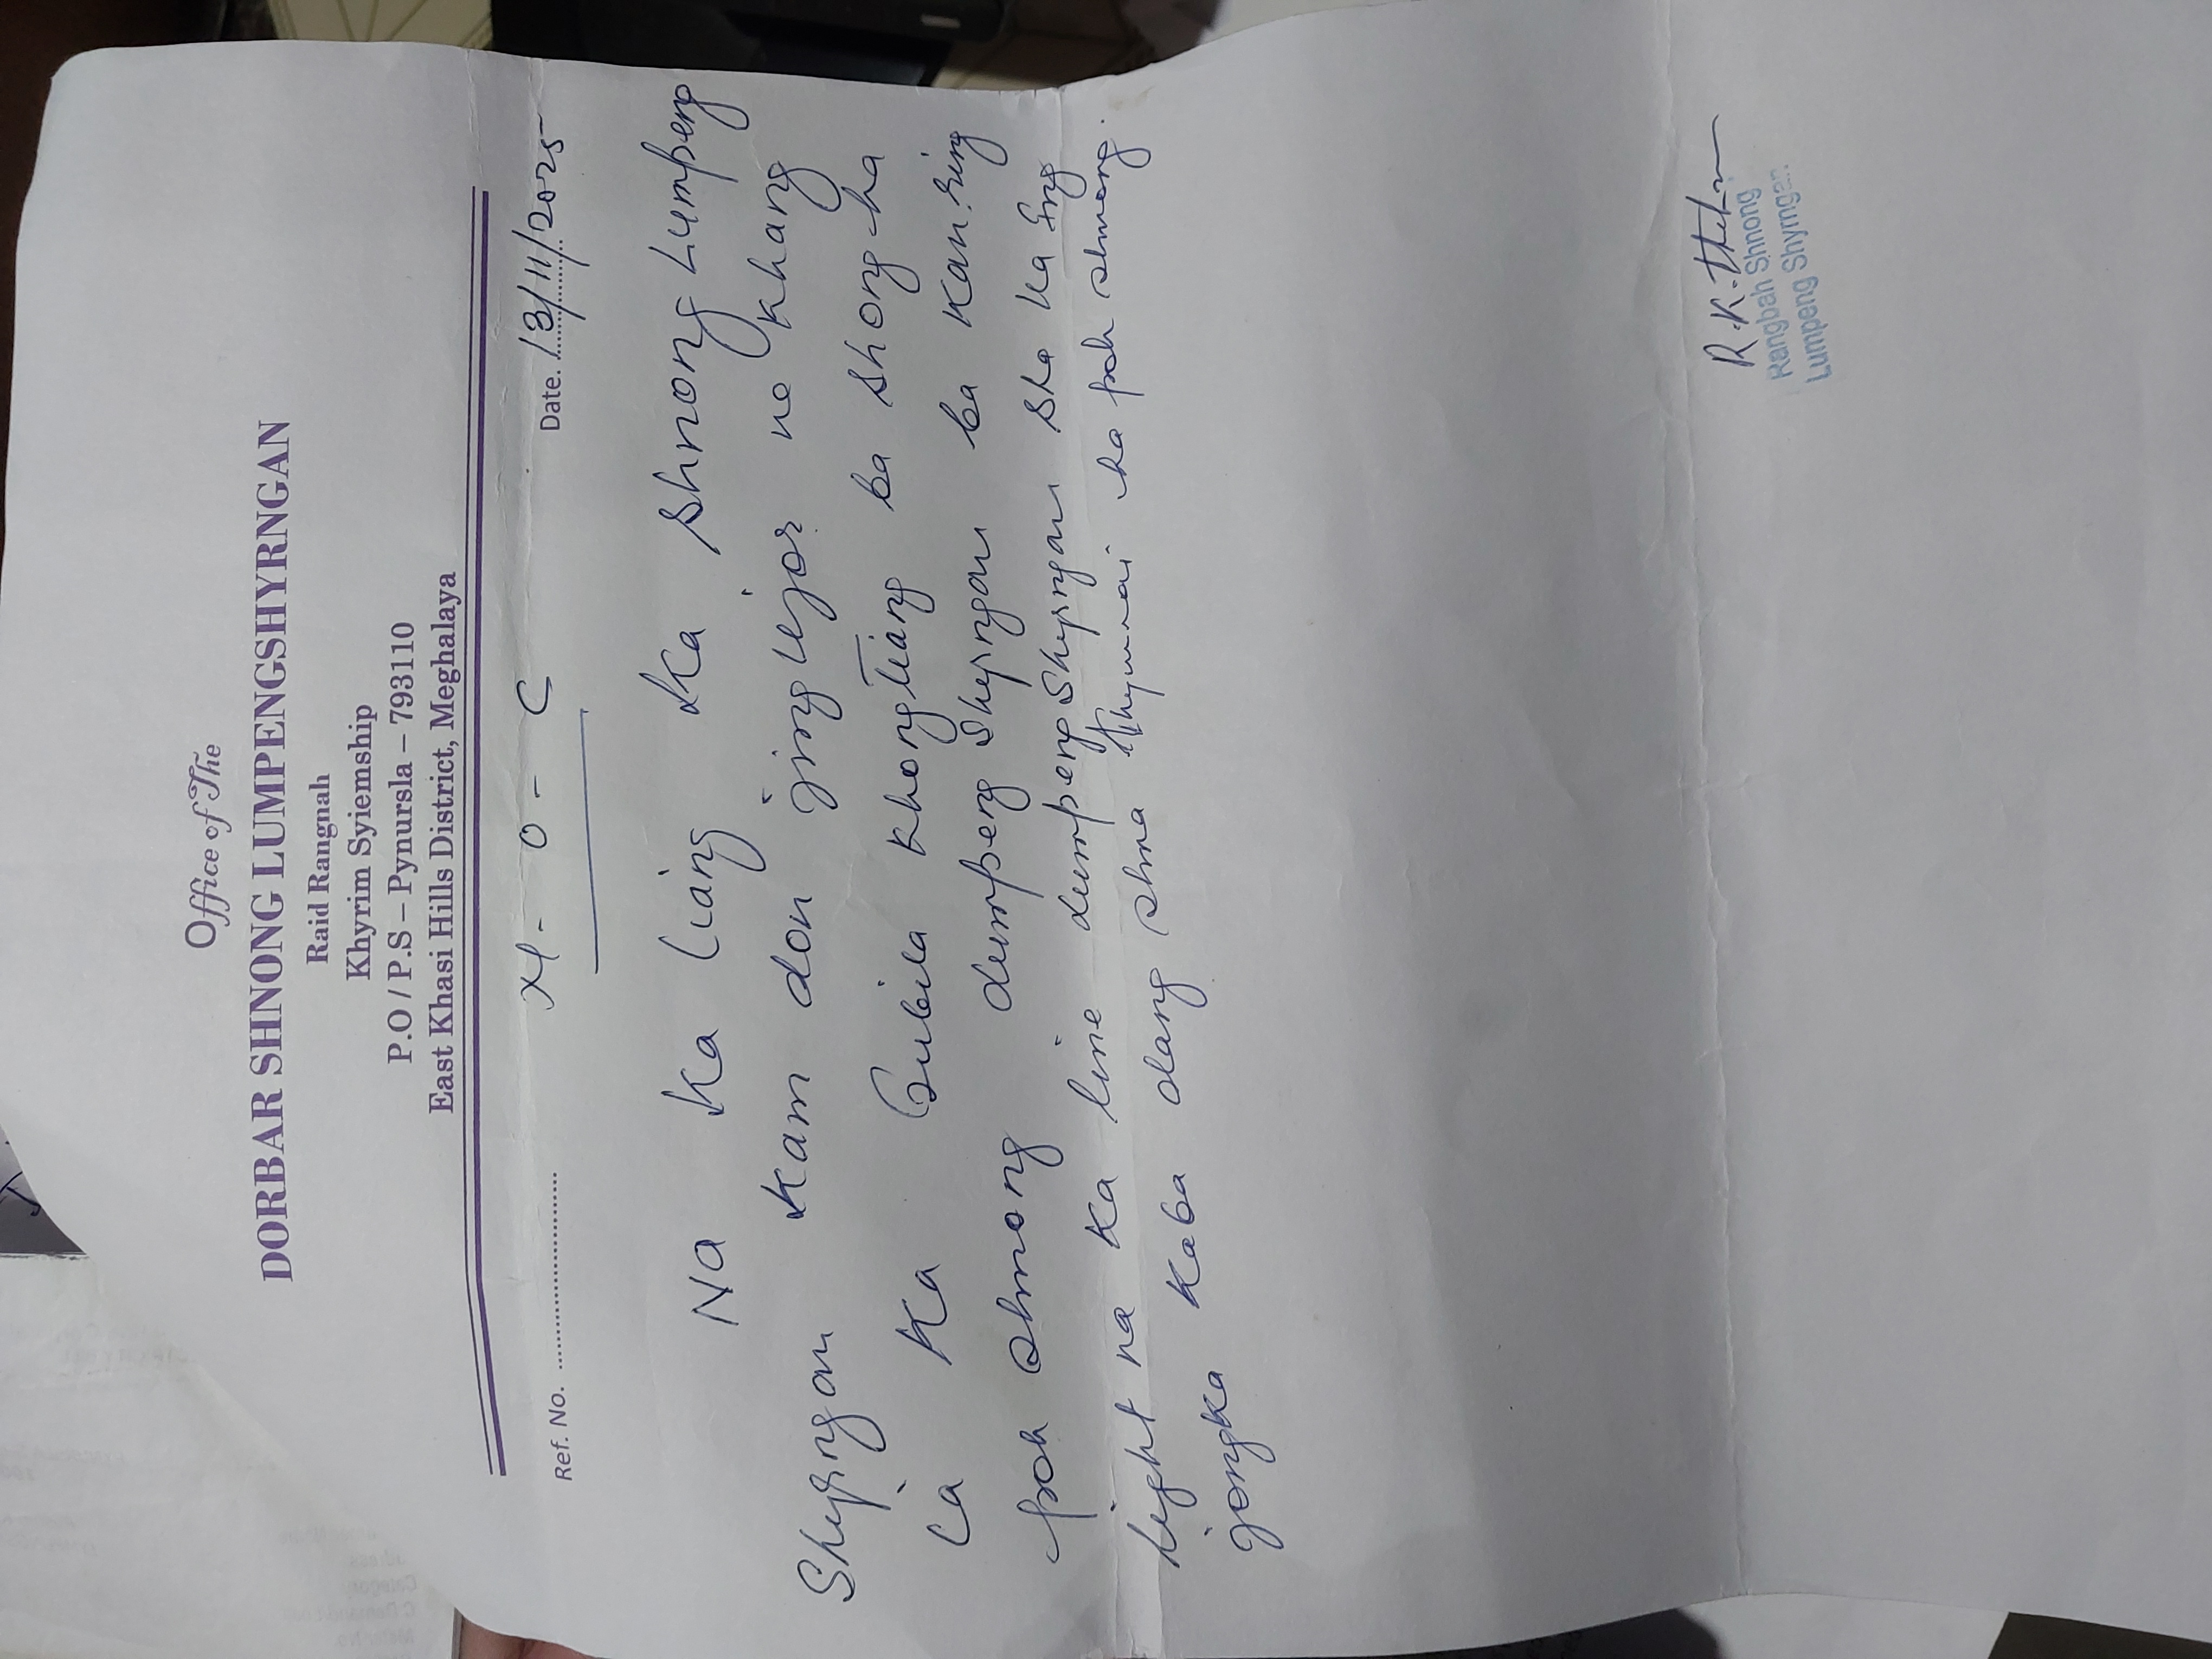 Office of The
DORBAR SHNONG LUMPENGSHYRNGAN
Raid Rangnah
Khyrim Syiemship
P.O / P.S – Pynursla – 793110
East Khasi Hills District, Meghalaya
Ref. No. ........................ N - O - C Date. 13/11/2025
Na Ka Liang Ka Shnong Lumpeng
Shyrngan Kam don jinglejor no Khang
La Ka Subila Khongliang ba shong ha
poh Shnong Lumpeng Shyrngan ba kan ring
light na Ka line Lumpeng Shyrngan sha ka ïing
jongka kaba dang shna thymmai ha poh shnong.
R.K.
Rangbah Shnong
Lumpeng Shyrngan